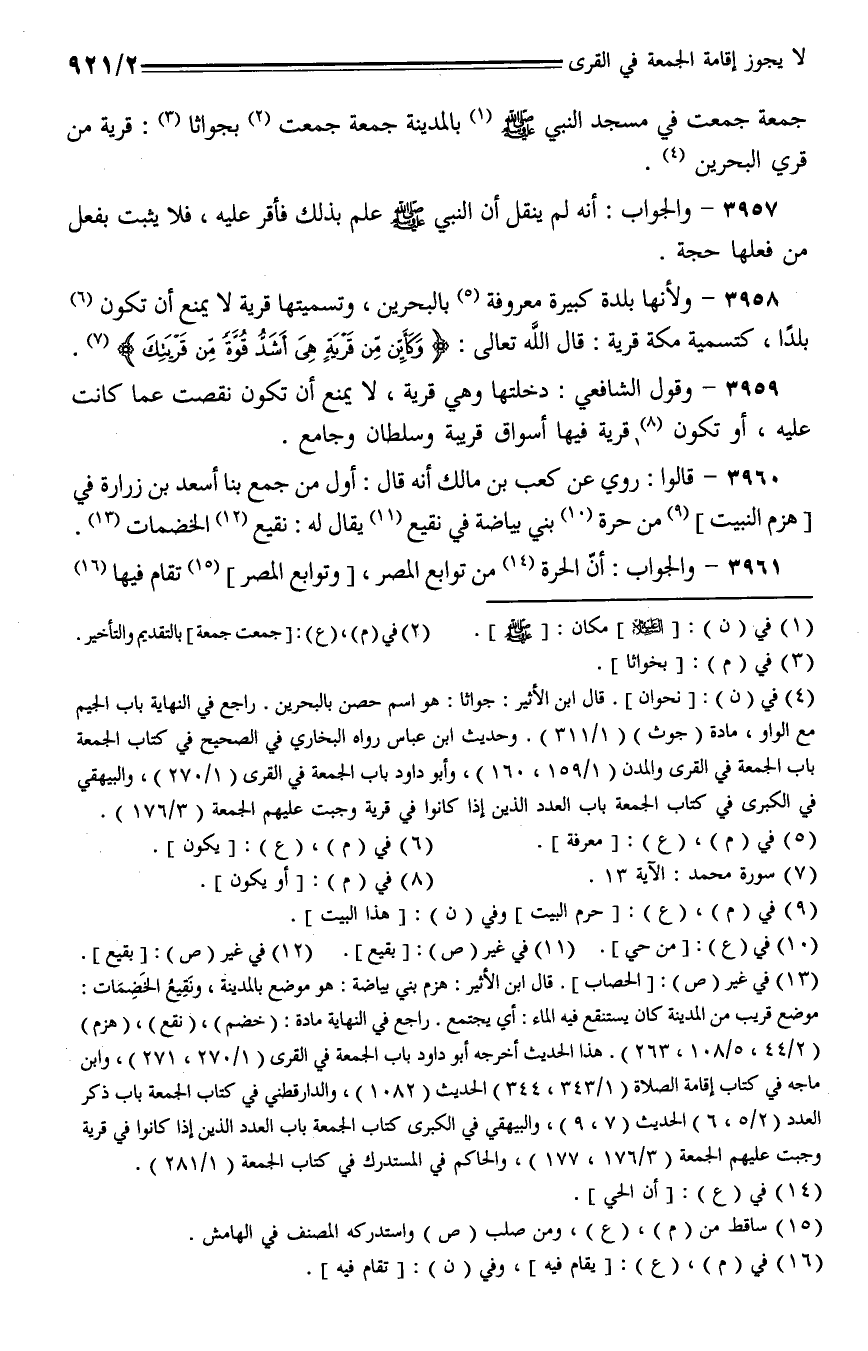 لا يجوز إقامة الجمعة في القرى ٩٢١/٢
جمعة جمعت في مسجد النبي ﷺ (١) بالمدينة جمعة جمعت (٢) بجواثا (٣) : قرية من
قري البحرين (٤) .
٣٩٥٧ – والجواب : أنه لم ينقل أن النبي ﷺ علم بذلك فأقر عليه ، فلا يثبت بفعل
من فعلها حجة .
٣٩٥٨ – ولأنها بلدة كبيرة معروفة (٥) بالبحرين ، وتسميتها قرية لا يمنع أن تكون (٦)
بلدًا ، كتسمية مكة قرية : قال اللَّه تعالى : ﴿ وَكَأَيِّن مِّن قَرْيَةٍ هِيَ أَشَدُّ قُوَّةً مِّن قَرْيَتِكَ ﴾ (٧) .
٣٩٥٩ – وقول الشافعي : دخلتها وهي قرية ، لا يمنع أن تكون نقصت عما كانت
عليه ، أو تكون (٨) قرية فيها أسواق قريبة وسلطان وجامع .
٣٩٦٠ – قالوا : روي عن كعب بن مالك أنه قال : أول من جمع بنا أسعد بن زرارة في
[ هزم النبيت ] (٩) من حرة (١٠) بني بياضة في نقيع (١١) يقال له : نقيع (١٢) الخضمات (١٣) .
٣٩٦١ – والجواب : أنّ الحرة (١٤) من توابع المصر ، [ وتوابع المصر ] (١٥) تقام فيها (١٦)
(١) في ( ن ) : [ ] مكان : [ ﷺ ] . (٢) في (م) ، (ع) : [ جمعت جمعة ] بالتقديم والتأخير .
(٣) في ( م ) : [ بخواثا ] .
(٤) في ( ن ) : [ نحوان ] . قال ابن الأثير : جواثا : هو اسم حصن بالبحرين . راجع في النهاية باب الجيم
مع الواو ، مادة ( جوث ) ( ٣١١/١ ) . وحديث ابن عباس رواه البخاري في الصحيح في كتاب الجمعة
باب الجمعة في القرى والمدن ( ١٥٩/١ ، ١٦٠ ) ، وأبو داود باب الجمعة في القرى ( ٢٧٠/١ ) ، والبيهقي
في الكبرى في كتاب الجمعة باب العدد الذين إذا كانوا في قرية وجبت عليهم الجمعة ( ١٧٦/٣ ) .
(٥) في ( م ) ، ( ع ) : [ معرفة ] . (٦) في ( م ) ، ( ع ) : [ يكون ] .
(٧) سورة محمد : الآية ١٣ . (٨) في ( م ) : [ أو يكون ] .
(٩) في ( م ) ، ( ع ) : [ حرم البيت ] وفي ( ن ) : [ هذا البيت ] .
(١٠) في ( ع ) : [ من حي ] . (١١) في غير ( ص ) : [ بقيع ] . (١٢) في غير ( ص ) : [ بقيع ] .
(١٣) في غير ( ص ) : [ الحصاب ] . قال ابن الأثير : هزم بني بياضة : هو موضع بالمدينة ، ونَقِيعُ الخَضِمَات :
موضع قريب من المدينة كان يستنقع فيه الماء : أي يجتمع . راجع في النهاية مادة : ( خضم ) ، ( نقع ) ، ( هزم )
( ٤٤/٢ ، ١٠٨/٥ ، ٢٦٣ ) . هذا الحديث أخرجه أبو داود باب الجمعة في القرى ( ٢٧٠/١ ، ٢٧١ ) ، وابن
ماجه في كتاب إقامة الصلاة ( ٣٤٣/١ ، ٣٤٤ ) الحديث ( ١٠٨٢ ) ، والدارقطني في كتاب الجمعة باب ذكر
العدد ( ٥/٢ ، ٦ ) الحديث ( ٧ ، ٩ ) ، والبيهقي في الكبرى كتاب الجمعة باب العدد الذين إذا كانوا في قرية
وجبت عليهم الجمعة ( ١٧٦/٣ ، ١٧٧ ) ، والحاكم في المستدرك في كتاب الجمعة ( ٢٨١/١ ) .
(١٤) في ( ع ) : [ أن الحي ] .
(١٥) ساقط من ( م ) ، ( ع ) ، ومن صلب ( ص ) واستدركه المصنف في الهامش .
(١٦) في ( م ) ، ( ع ) : [ يقام فيه ] ، وفي ( ن ) : [ تقام فيه ] .